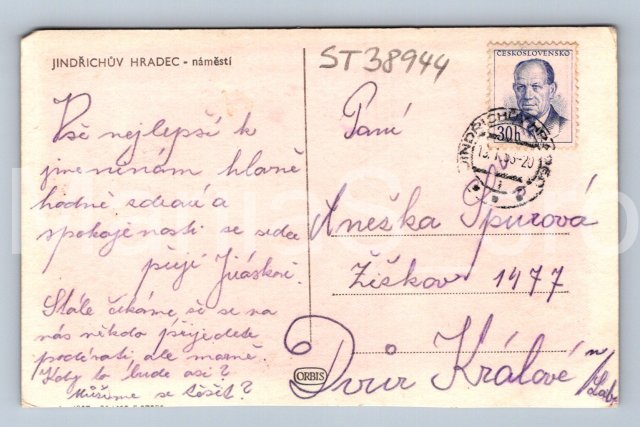 JINDŘICHŮV HRADEC - náměstí
ST38944
ČESKOSLOVENSKO
30h
Vše nejlepší k
jmeninám hlavně
hodně zdraví a
spokojenosti ze srdce
přejí Jiráskovi.
Stále čekáme, že se na
nás někdo přijedete
podívati, ale marně.
Kdy to bude asi?
Můžeme se těšit?
Paní
Anežka Špurová
Žižkova 1477
Dvůr Králové n/Lab.
ORBIS